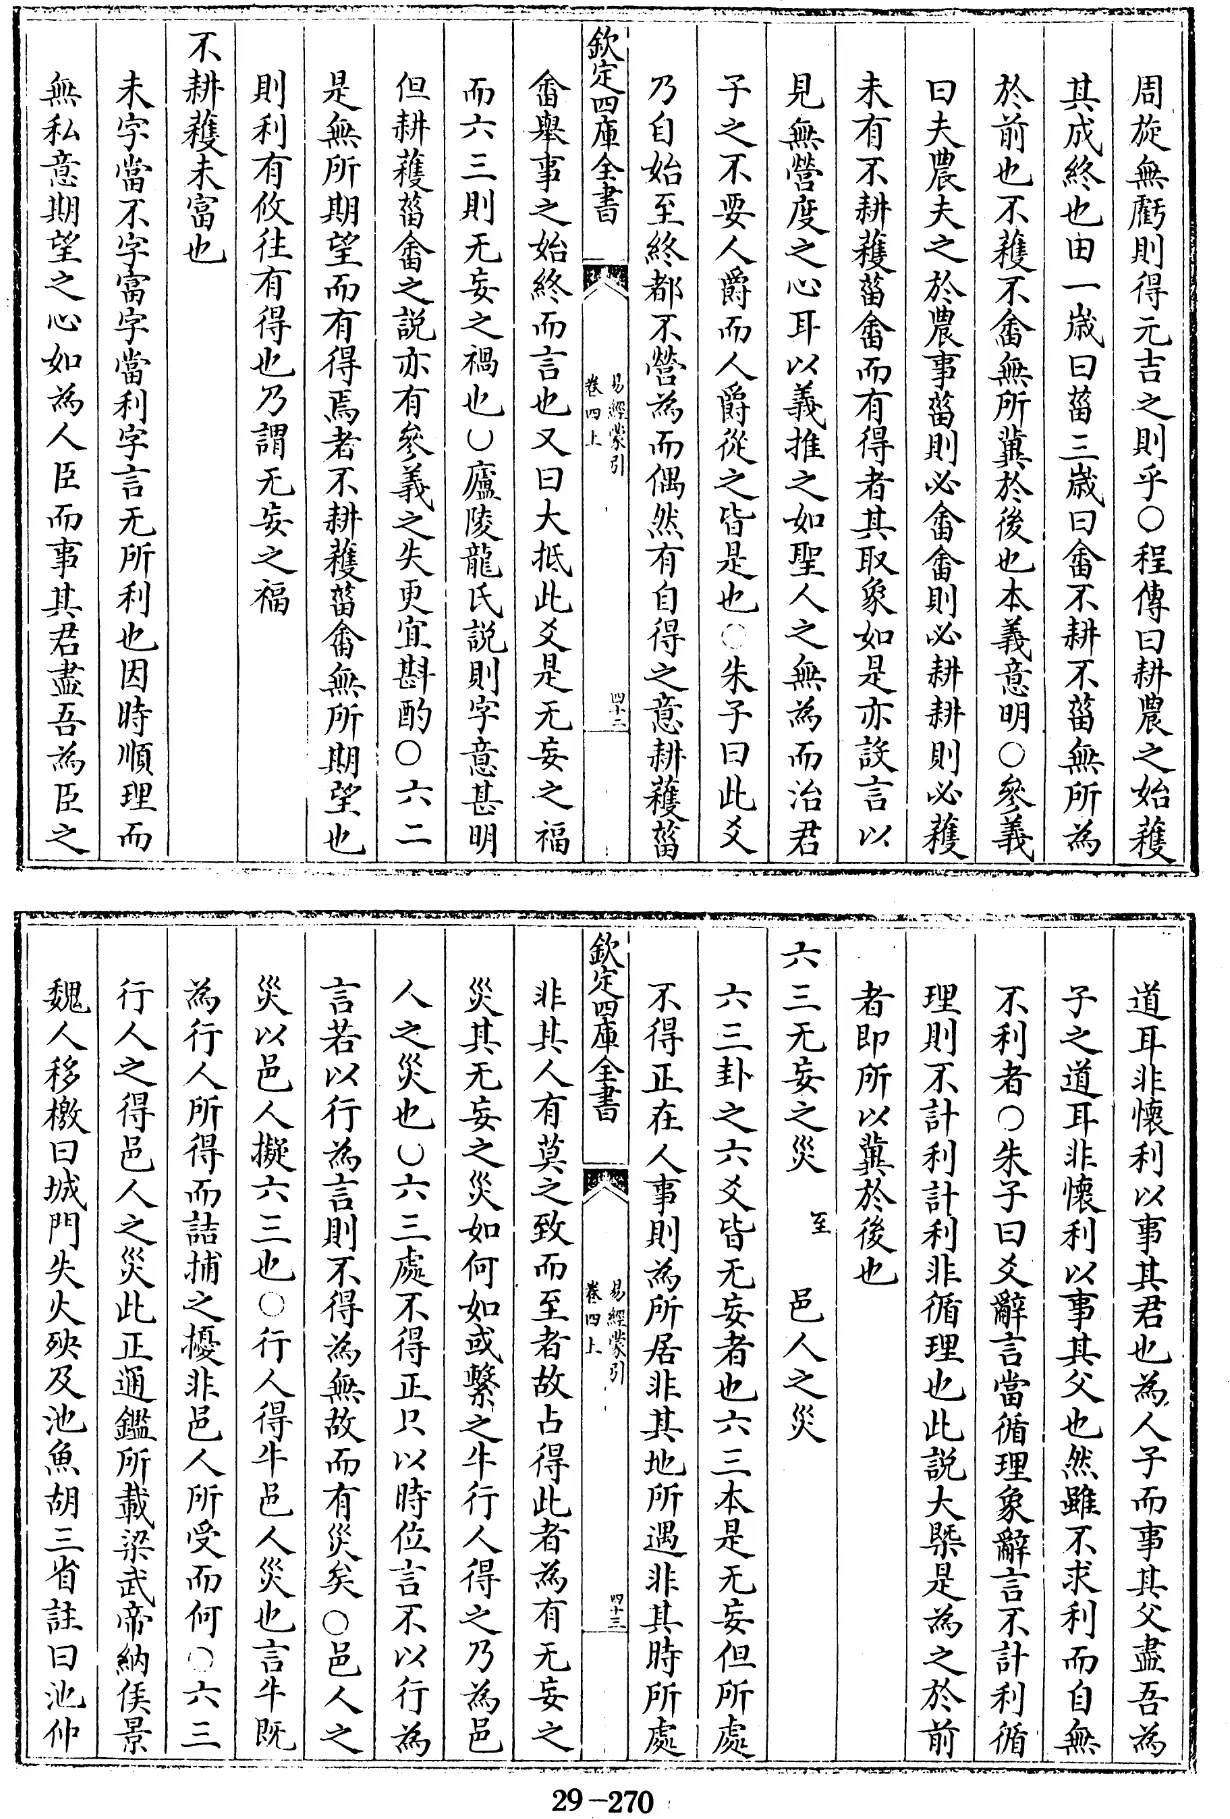 周旋無虧則得元吉之則乎○程傳曰耕農之始穫
其成終也田一歲曰菑三歲曰畬不耕不菑無所為
於前也不穫不畬無所冀於後也本義意明○參義
曰夫農夫之於農事菑則必畬畬則必耕耕則必穫
未有不耕穫菑畬而有得者其取象如是亦設言以
見無營度之心耳以義推之如聖人之無為而治君
子之不要人爵而人爵從之皆是也○朱子曰此爻
乃自始至終都不營為而偶然有自得之意耕穫菑
欽定四庫全書
易經蒙引
卷四上
四十二
畬舉事之始終而言也又曰大抵此爻是无妄之福
而六三則无妄之禍也○廬陵龍氏說則字意甚明
但耕穫菑畬之說亦有參義之失更宜斟酌○六二
是無所期望而有得焉者不耕穫菑畬無所期望也
則利有攸往有得也乃謂无妄之福
不耕穫未富也
未字當不字富字當利字言无所利也因時順理而
無私意期望之心如為人臣而事其君盡吾為臣之
道耳非懷利以事其君也為人子而事其父盡吾為
子之道耳非懷利以事其父也然雖不求利而自無
不利者○朱子曰爻辭言當循理象辭言不計利循
理則不計利計利非循理也此説大槩是為之於前
者即所以冀於後也
六三无妄之災 至 邑人之災
六三卦之六爻皆无妄者也六三本是无妄但所處
不得正在人事則為所居非其地所遇非其時所處
欽定四庫全書
易經蒙引
卷四上
四十三
非其人有莫之致而至者故占得此者為有无妄之
災其无妄之災如何如或繫之牛行人得之乃為邑
人之災也○六三處不得正只以時位言不以行為
言若以行為言則不得為無故而有災矣○邑人之
災以邑人擬六三也○行人得牛邑人災也言牛既
為行人所得而詰捕之擾非邑人所受而何○六三
行人之得邑人之災此正通鑑所載梁武帝納侯景
魏人移檄曰城門失火殃及池魚胡三省註曰池仲
29-270